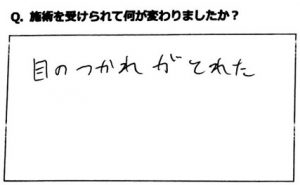 Q. 施術を受けられて何が変わりましたか？
目のつかれがとれた